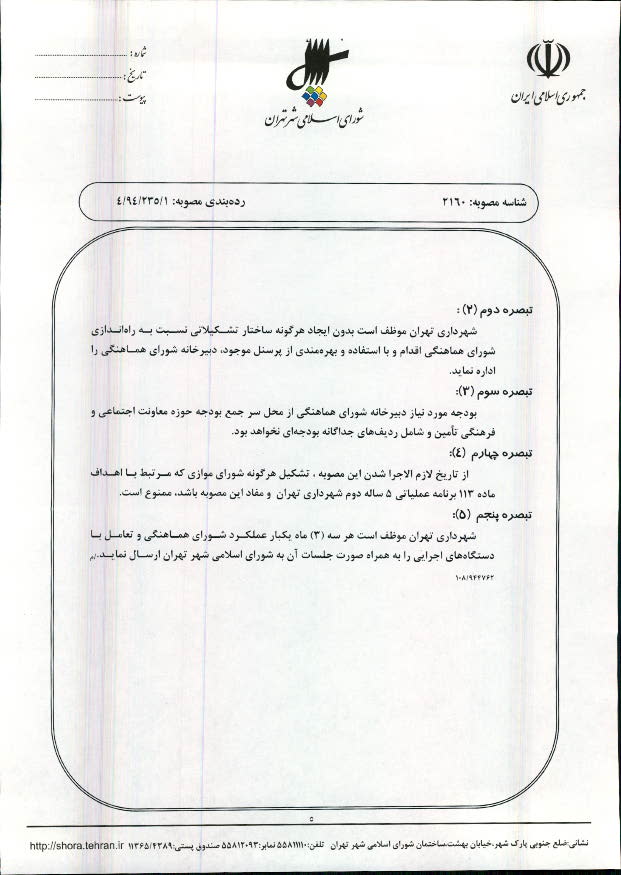 جمهوری اسلامی ایران
شورای اسلامی شهر تهران
شماره:
تاریخ:
پیوست:
شناسه مصوبه: ۲۱۶۰
رده‌بندی مصوبه: ۴/۹۴/۲۳۵/۱
تبصره دوم (۲) :
شهرداری تهران موظف است بدون ایجاد هرگونه ساختار تشکیلاتی نسبت به راه‌اندازی
شورای هماهنگی اقدام و با استفاده و بهره‌مندی از پرسنل موجود، دبیرخانه شورای هماهنگی را
اداره نماید.
تبصره سوم (۳):
بودجه مورد نیاز دبیرخانه شورای هماهنگی از محل سر جمع بودجه حوزه معاونت اجتماعی و
فرهنگی تأمین و شامل ردیف‌های جداگانه بودجه‌ای نخواهد بود.
تبصره چهارم (۴):
از تاریخ لازم الاجرا شدن این مصوبه ، تشکیل هرگونه شورای موازی که مرتبط با اهداف
ماده ۱۱۳ برنامه عملیاتی ۵ ساله دوم شهرداری تهران و مفاد این مصوبه باشد، ممنوع است.
تبصره پنجم (۵):
شهرداری تهران موظف است هر سه (۳) ماه یکبار عملکرد شورای هماهنگی و تعامل با
دستگاه‌های اجرایی را به همراه صورت جلسات آن به شورای اسلامی شهر تهران ارسال نماید./م
۱۰۸/۹۴۴۷۶۲
۵
نشانی:ضلع جنوبی پارک شهر،خیابان بهشت،ساختمان شورای اسلامی شهر تهران تلفن:۵۵۸۱۱۱۱۰ نمابر:۵۵۸۱۲۰۹۳ صندوق پستی:۱۱۳۶۵/۴۳۸۹ http://shora.tehran.ir